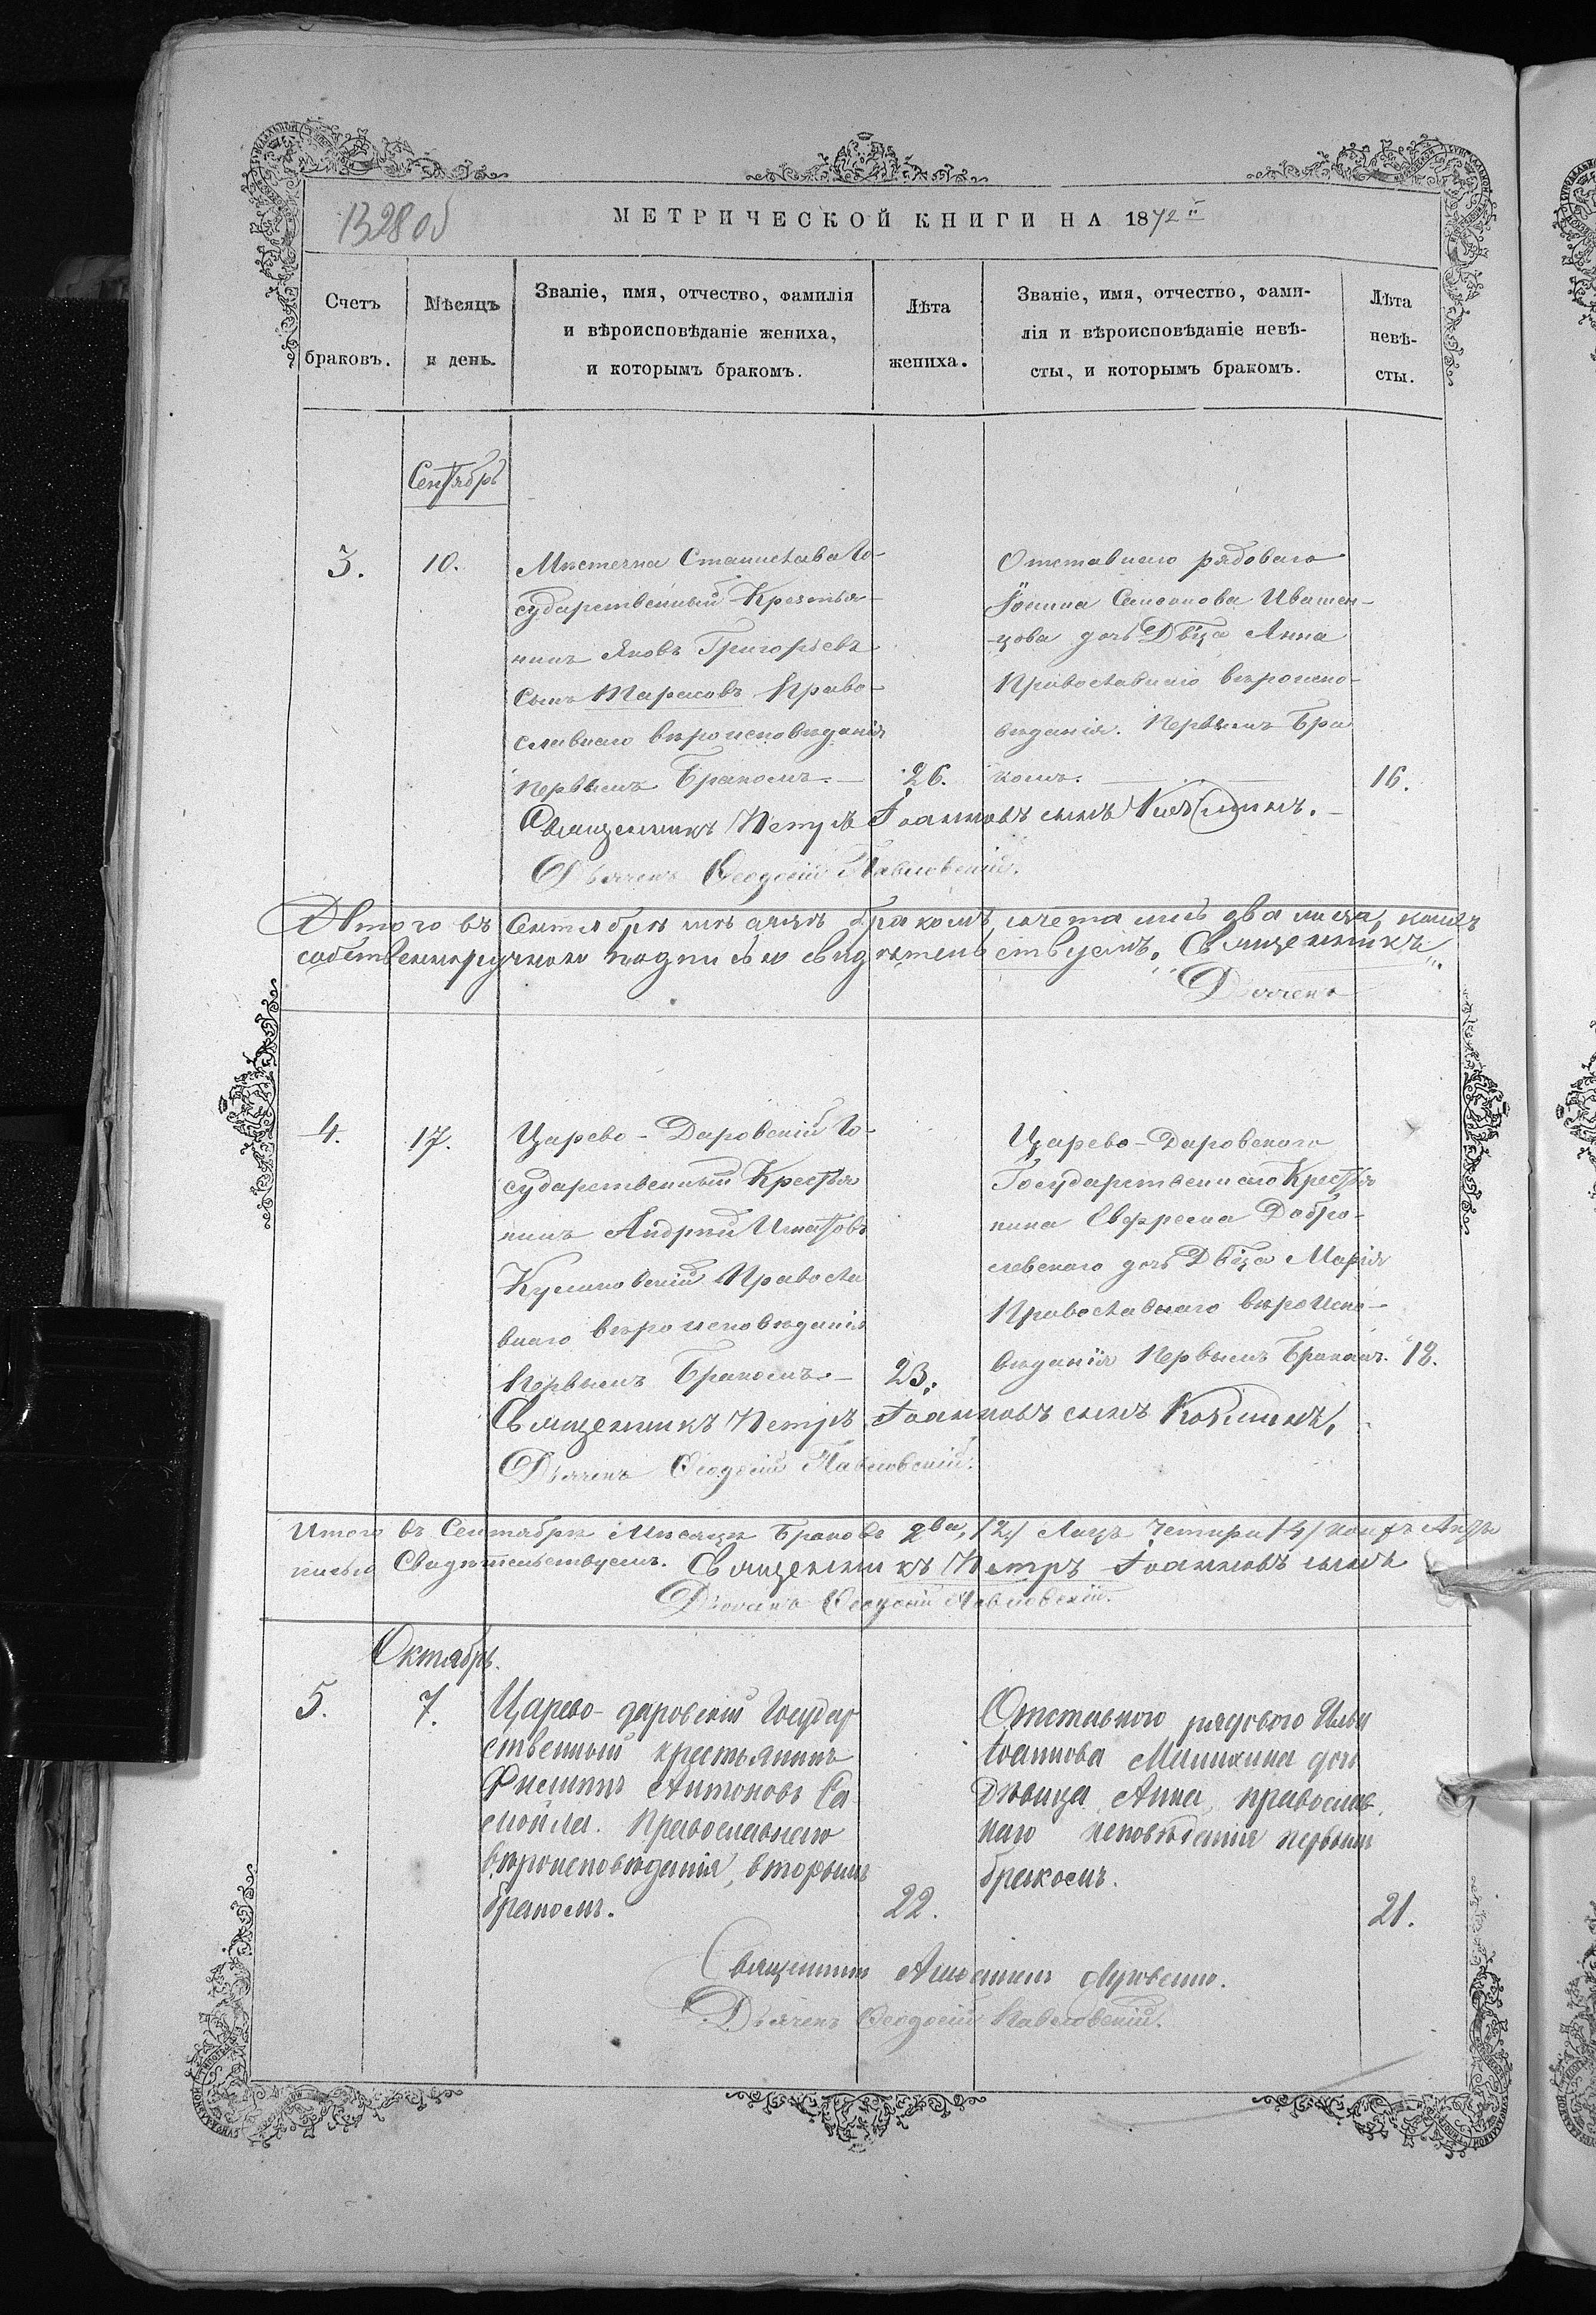 1328 об
МЕТРИЧЕСКОЙ КНИГИ НА 1872й
Счетъ браковъ.
Мѣсяцъ и день.
Званіе, имя, отчество, фамилія
и вѣроисповѣданіе жениха,
и которымъ бракомъ.
Лѣта
жениха.
Званіе, имя, отчество, фами-
лія и вѣроисповѣданіе невѣ-
сты, и которымъ бракомъ.
Лѣта
невѣ-
сты.
Сентябрь
3.
10.
Мѣстечка Станислава Го-
сударственный Крестья-
нинъ Яковъ Григорьевъ
Сынъ Тарасовъ Право-
славнаго вѣроисповѣданія
Первымъ Бракомъ. —
26.
Отставнаго рядоваго
Іоанна Ивашен-
цова дочь Двѣца Анна
Православнаго вѣроиспо-
вѣданія. Первымъ Бра
комъ. —
16.
Священникъ Петръ Іоанновъ сынъ
Дьячекъ Ѳеодосій Павловскій.
въ Сентябрѣ мѣсяцѣ бракомъ два лица,
собственноручною подписью свидѣтельствуемъ. Священникъ
Дьячекъ
4.
17.
Царево-Даровскій Го-
сударственный Крестья
нинъ Андрей Игнатовъ
Куликовскій Правосла
внаго вѣроисповѣданія
Первымъ Бракомъ —
23.
Царево-Даровскаго
Государственнаго Крестья
нина Евфрема Добро-
левскаго дочь Двѣца Марія
Православнаго вѣроиспо-
вѣданія Первымъ Бракомъ.
18.
Священникъ Петръ Іоанновъ сынъ
Дьячекъ Ѳеодосій Павловскій.
Итого въ Сентябрѣ Мѣсяцѣ Браковъ 2ва, /2/ Лицъ Четыри /4/
Свидѣтельствуемъ. Священникъ Петръ Іоанновъ сынъ
Дьячекъ Ѳеодосій Павловскій.
Октябрь.
5.
7.
Царево-даровскій Государ
ственный крестьянинъ
Филиппъ Антоновъ Са
мойла. Православнаго
вѣроисповѣданія, вторымъ
бракомъ.
22.
Отставного рядового Ильи
Іоаннова дочь
Дѣвица Анна, православ
наго исповѣданія первымъ
бракомъ.
21.
Священникъ
Дьячекъ Ѳеодосій Павловскій.